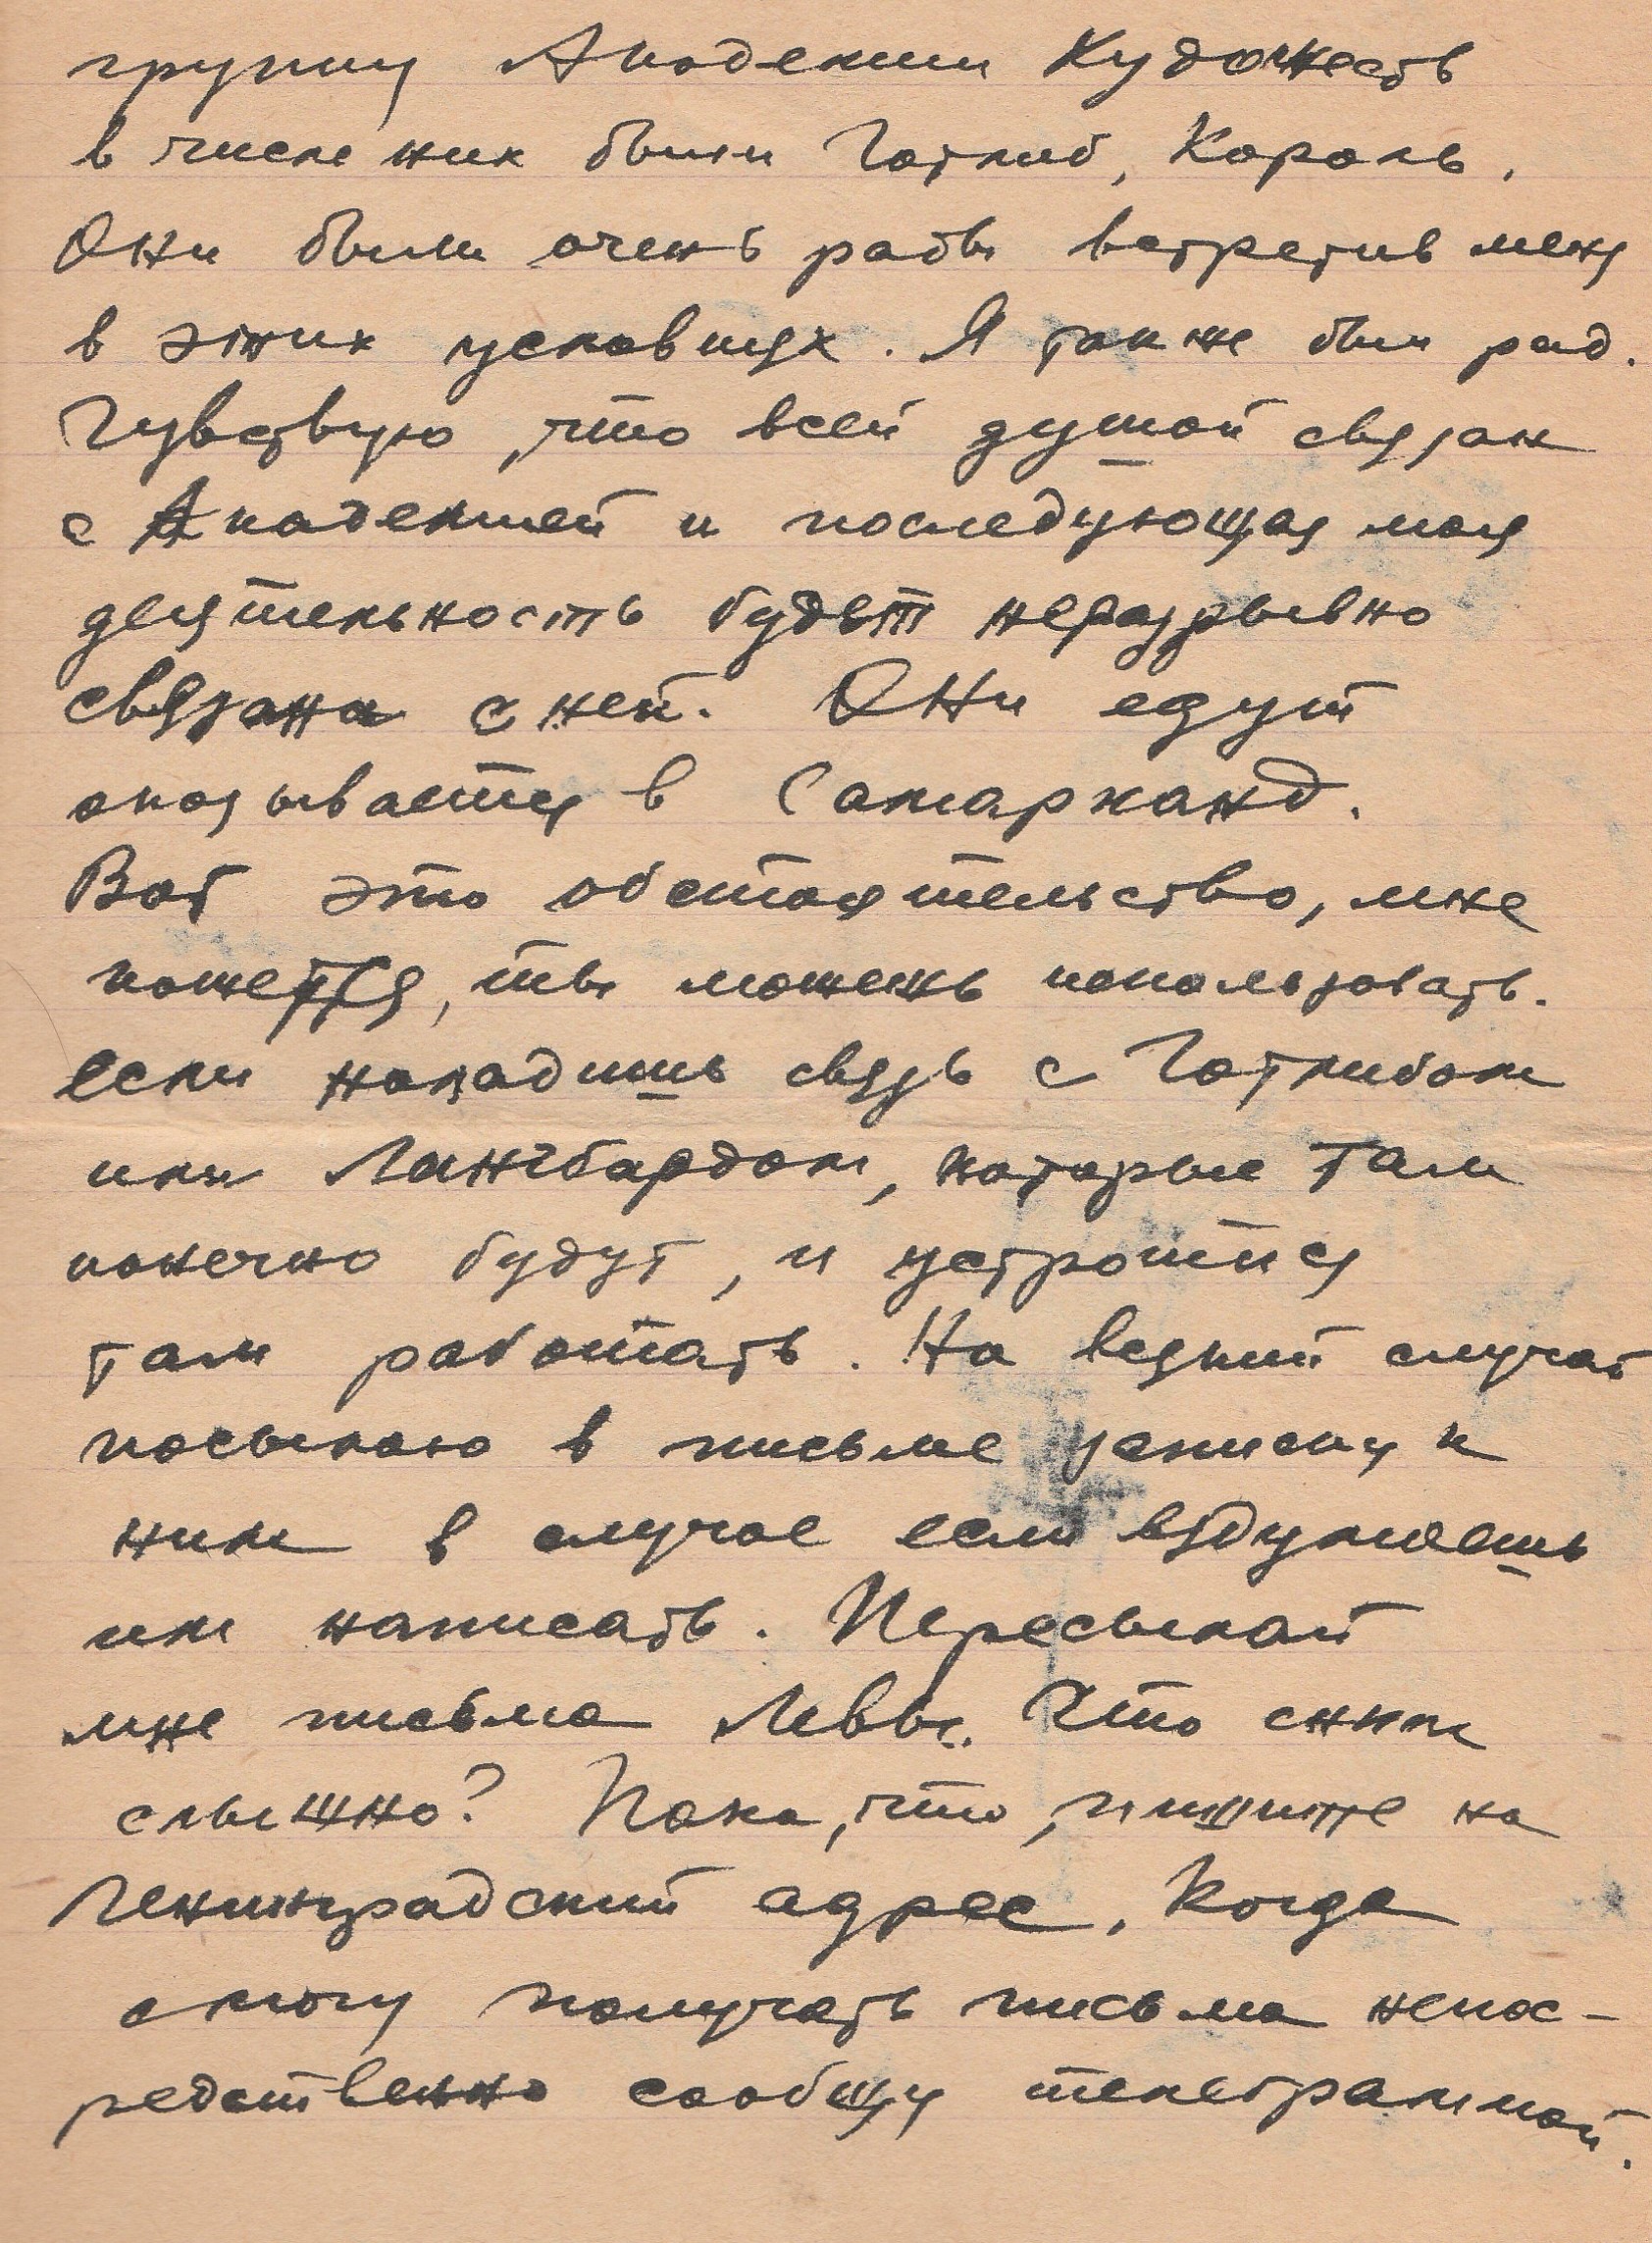 группу Академии Художеств
в числе них были Готлиб, Король.
Они были очень рады встретив меня
в этих условиях. Я также был рад.
Чувствую, что всей душой связан
с Академией и последующая моя
деятельность будет неразрывно
связана с ней. Они едут
оказывается в Самарканд.
Вот это обстоятельство, мне
кажется, ты можешь использовать.
если наладишь связь с Готлибом
или Лангбардом, которые там
конечно будут, и устроиться
там работать. На всякий случай
посылаю в письме записку к
ним в случае если вздумаешь
им написать. Пересылай
мне письма Левы. Что с ним
слышно? Пока, что, пишите на
Ленинградский адрес. Когда
смогу получать письма непос-
редственно сообщу телеграммой.